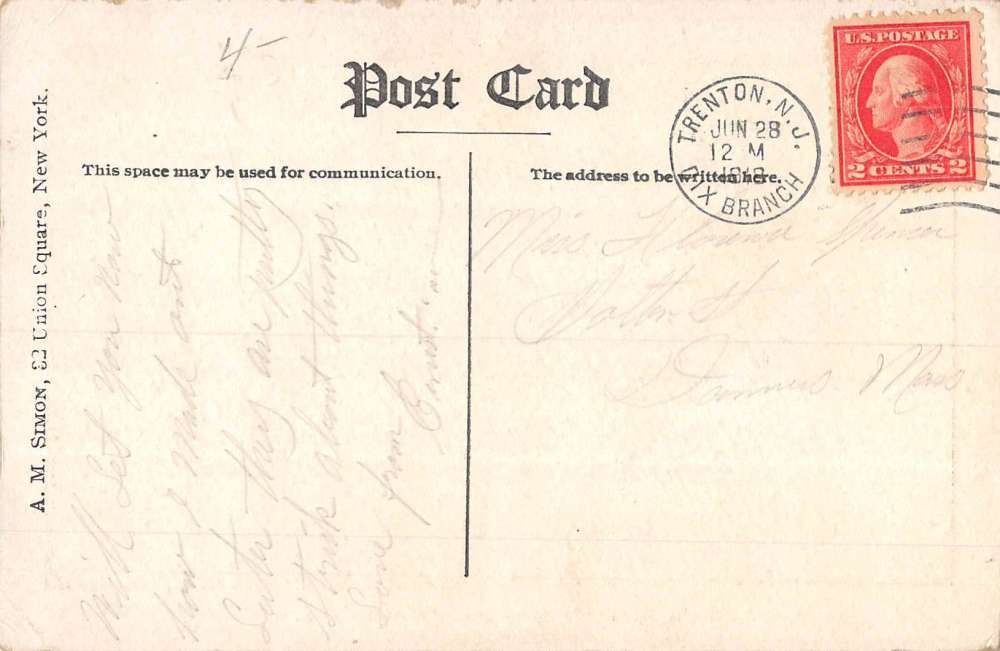 4-
Post Card
This space may be used for communication.
The address to be written here.
A. M. SIMON, 32 Union Square, New York.
TRENTON, N.J.
JUN 28
12 M
1918
DIX BRANCH
U.S. POSTAGE
2 CENTS 2
Miss. Florence Spencer
St
Danvers. Mass.
Will Let you know
how I make out
Later they are pretty
strick about things.
Love from
Ernest.